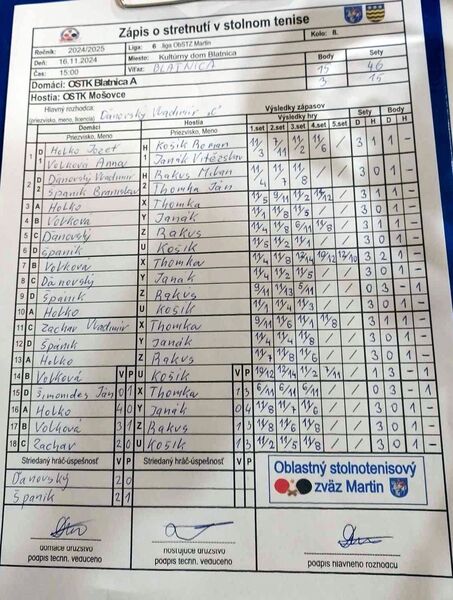 Zápis o stretnutí v stolnom tenise
Ročník: 2024/2025 Liga: 6 .liga ObSTZ Martin Kolo: 8.
Deň: 16.11.2024 Miesto: Kultúrny dom Blatnica Body Sety
Čas: 15:00 Víťaz: BLATNICA 15 46
Domáci: OSTK Blatnica A 3 15
Hostia: OSTK Mošovce
Hlavný rozhodca:
(priezvisko, meno, licencia) Ďanovský Vladimír "C"
Výsledky zápasov
Domáci Hostia Výsledky hry Sety Body
Priezvisko, Meno Priezvisko, Meno 1.set 2.set 3.set 4.set 5.set D H D H
1 D1 Holko Jozef H1 Košík Roman 11/3 7/11 11/2 11/6 / 3 1 1 -
Volková Anna Janák Vítězslav
2 D2 Ďanovský Vladimír H2 Rakus Milan 11/4 11/7 11/8 / / 3 0 1 -
Španik Branislav Thomka Ján
3 A Holko X Thomka 11/5 9/11 11/2 / 3 1 1 -
4 B Volková Y Janák 11/1 11/8 11/5 / / 3 0 1 -
5 C Ďanovský Z Rakus 11/5 11/8 / 3 1 1 -
6 D Španik U Košík 11/5 11/2 11/1 / / 3 0 1 -
7 B Volková X Thomka 11/4 11/8 12/10 3 2 1 -
8 C Ďanovský Y Janák 11/4 11/2 11/5 / / 3 0 1 -
9 D Španik Z Rakus 9/11 11/13 5/11 / / 0 3 - 1
10 A Holko U Košík 11/1 11/4 11/3 / / 3 0 1 -
11 C Zachar Vladimír X Thomka 9/11 11/6 11/1 11/8 / 3 1 1 -
12 D Španik Y Janák 11/4 11/4 11/8 / / 3 0 1 -
13 A Holko Z Rakus 11/7 11/8 11/8 / / 3 0 1 -
14 B Volková V P U Košík V P 10/12 12/14 11/2 7/11 / 1 3 - 1
15 D Šimonides Ján 0 1 X Thomka 1 3 6/11 6/11 6/11 / / 0 3 - 1
16 A Holko 4 0 Y Janák 0 4 11/8 11/7 11/6 / / 3 0 1 -
17 B Volková 3 1 Z Rakus 1 3 11/8 11/6 11/8 / / 3 0 1 -
18 C Zachar 2 0 U Košík 1 3 11/2 11/5 11/8 / / 3 0 1 -
Striedaný hráč-úspešnosť V P Striedaný hráč-úspešnosť V P
Ďanovský 2 0
Španik 2 1
Oblastný stolnotenisový
zväz Martin
domáce družstvo hosťujúce družstvo
podpis techn. vedúceho podpis techn. vedúceho podpis hlavného rozhodcu